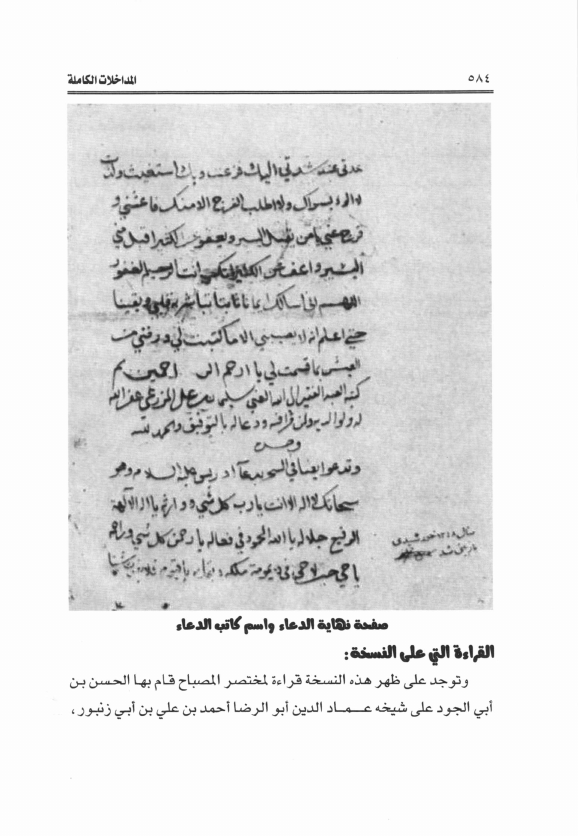 المداخلات الكاملة
٥٨٤
عدتي عند شدتي اليك فزعت وبك استغثت ولذت
لا الوذ بسواك ولا اطلب الفرج الا منك فاغثني و
فرج عني يا من يقبل اليسير ويعفو عن الكثير اقبل مني
اليسير واعف عن الكثير انك انت الرحيم الغفور
اللهم اني اسالك ايمانا تباشر به قلبي ويقينا
حتى اعلم انه لا يصيبني الا ما كتبت لي ورضني من
العيش بما قسمت لي يا ارحم الراحمين تم
كتبه العبد الفقير الى الله الغني علي المزرعي عفر الله
له ولوالديه ولمن قرا فيه ودعا له بالتوفيق والحمد لله
وحده
وتدعو ايضا في السحر بدعآ ادريس عليه السلام وهو
سبحانك لا اله الا انت يا رب كل شي ووارثه يا اله الآلهة
الرفيع جلاله يا الله المحمود في فعاله يا رحمن كل شي وراحمه
يا حي حين لا حي في ديمومة ملكه وبقائه يا قيوم
صفحة نهاية الدعاء واسم كاتب الدعاء
القراءة التي على النسخة:
وتوجد على ظهر هذه النسخة قراءة لمختصر المصباح قام بها الحسن بن
أبي الجود على شيخه عمـاد الدين أبو الرضا أحمد بن علي بن أبي زنبور،